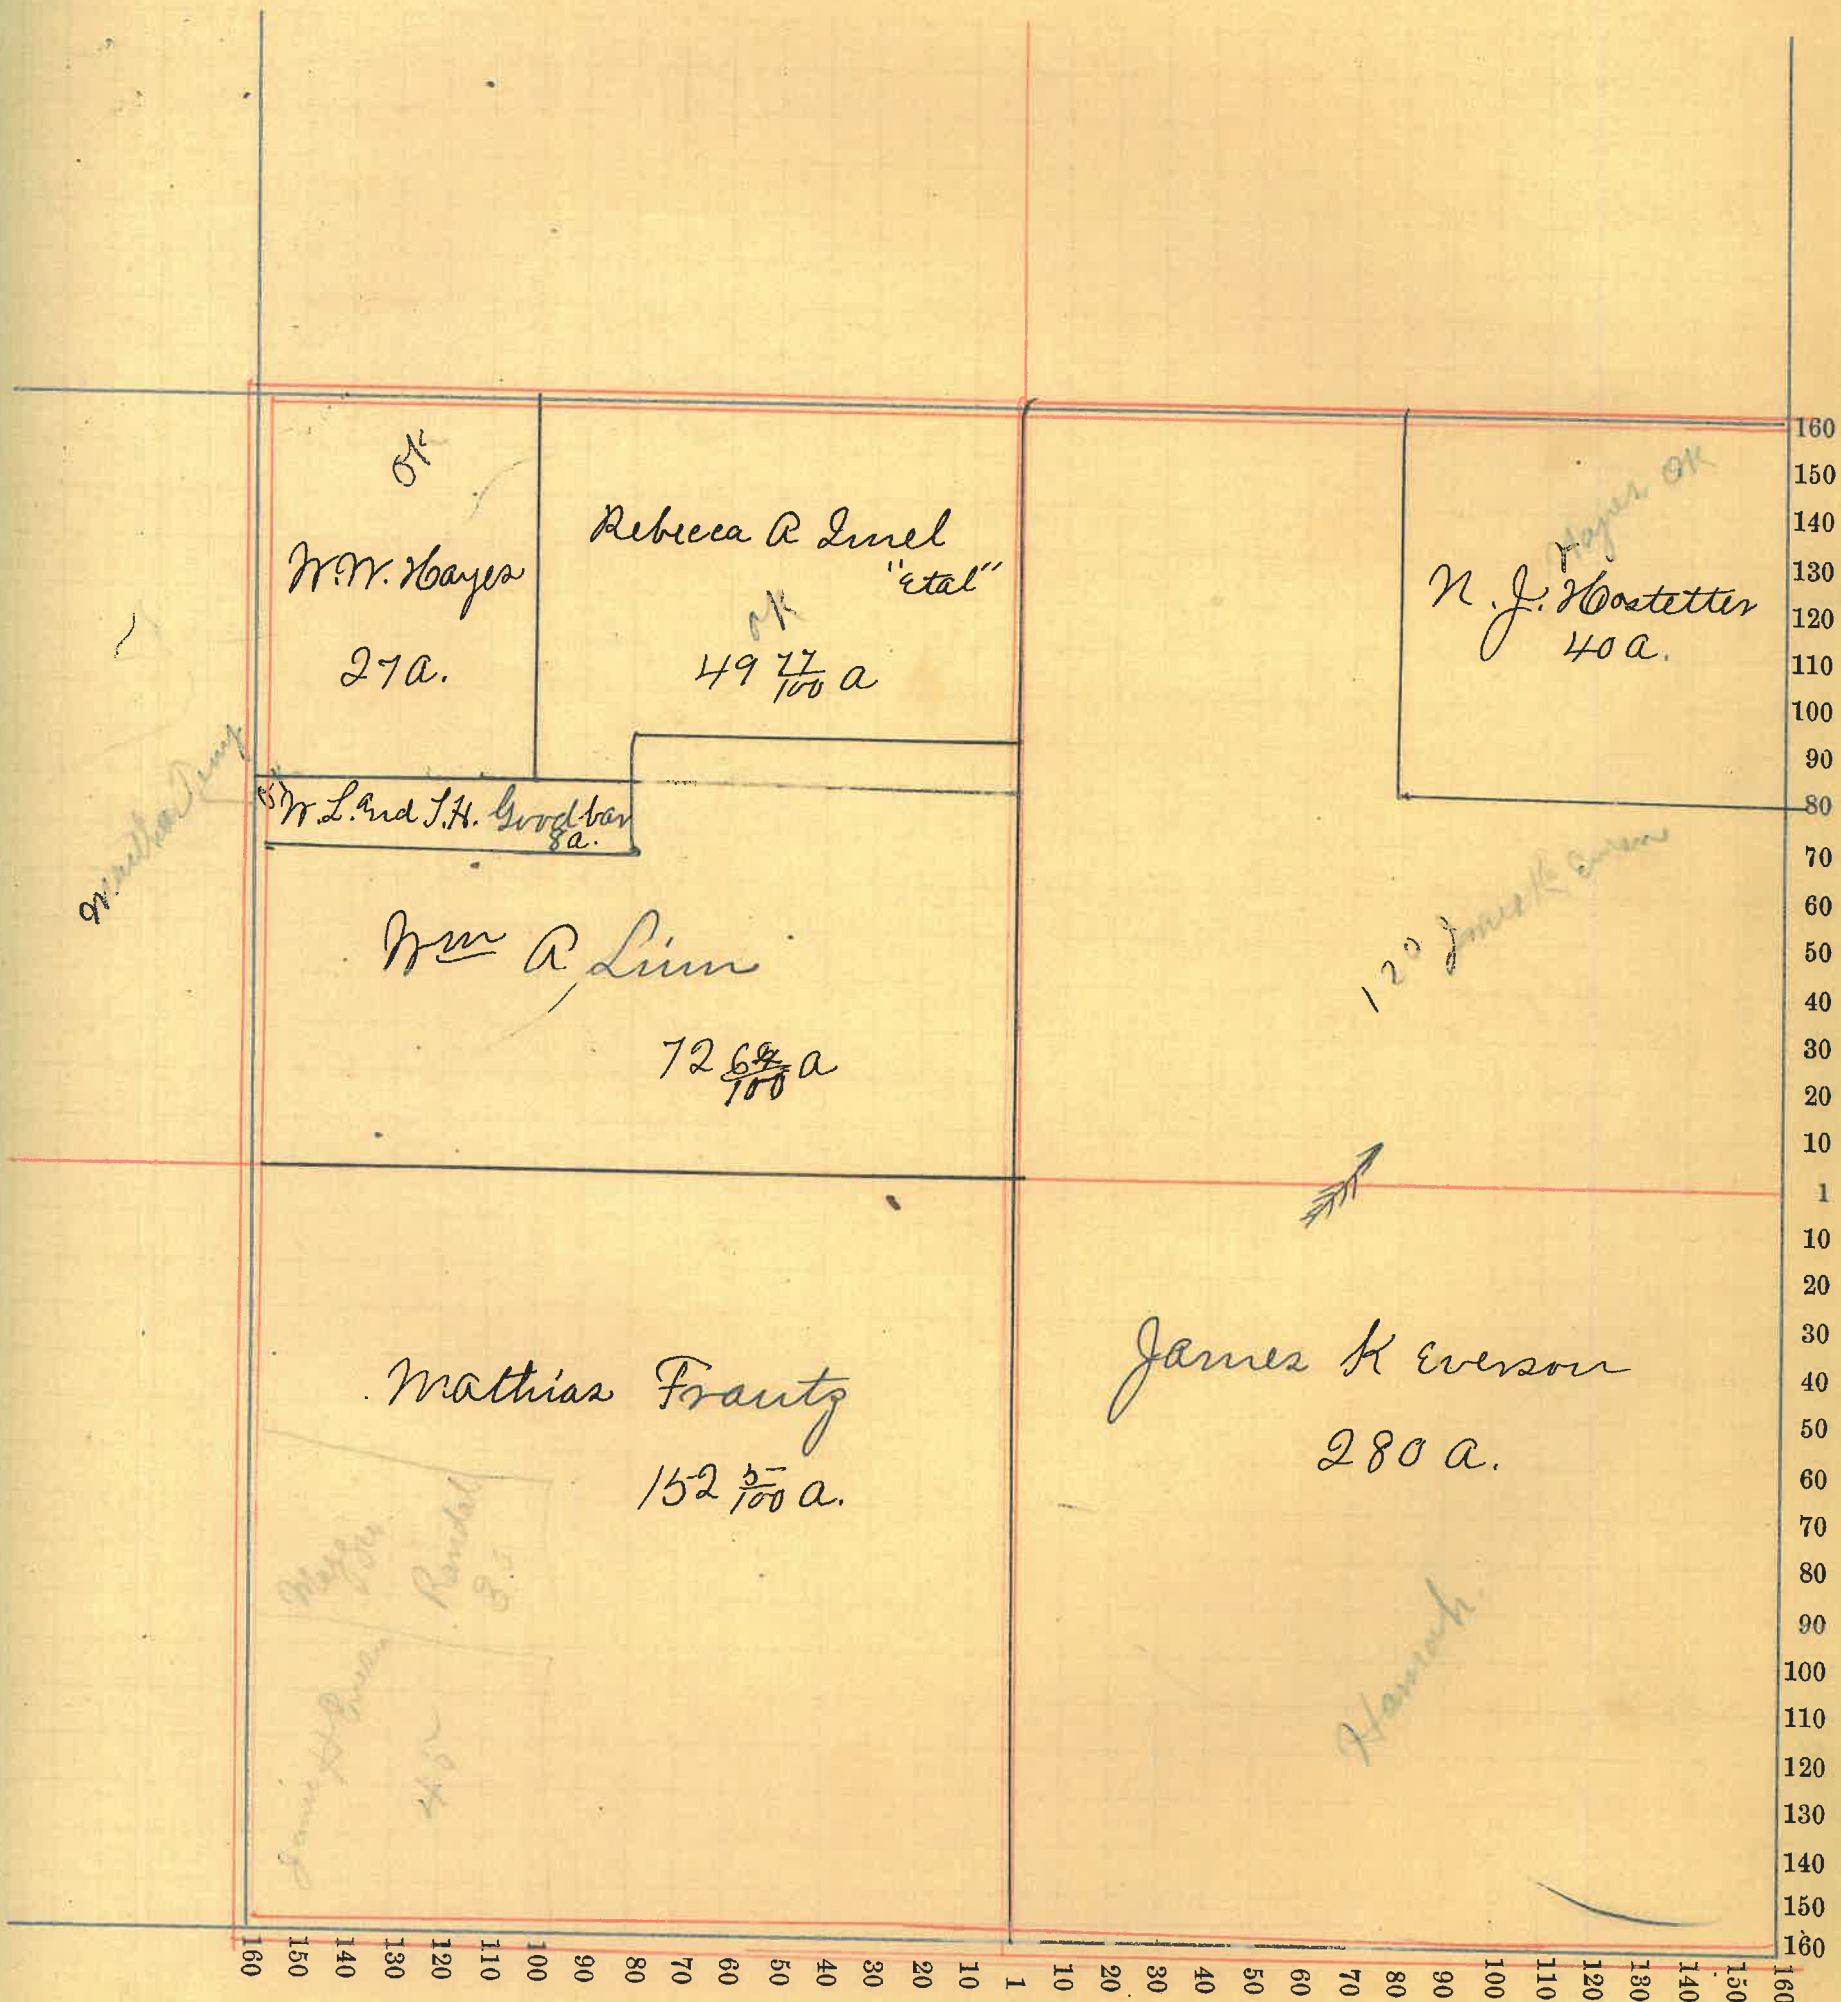 OK
W.W. Hayes
27 a.
Rebecca A Imel
"et al"
OK
49 77/100 a
Hayes OK
N. J. Hostetter
40 a.
W. L. and S. H. Goodbar
8 a.
Wm A Linn
72 64/100 a
120 James K
Mathias Frantz
152 5/100 a.
James K Everson
280 a.
Randal
45
Hannah
160
150
140
130
120
110
100
90
80
70
60
50
40
30
20
10
1
10
20
30
40
50
60
70
80
90
100
110
120
130
140
150
160
160 150 140 130 120 110 100 90 80 70 60 50 40 30 20 10 1 10 20 30 40 50 60 70 80 90 100 110 120 130 140 150 160